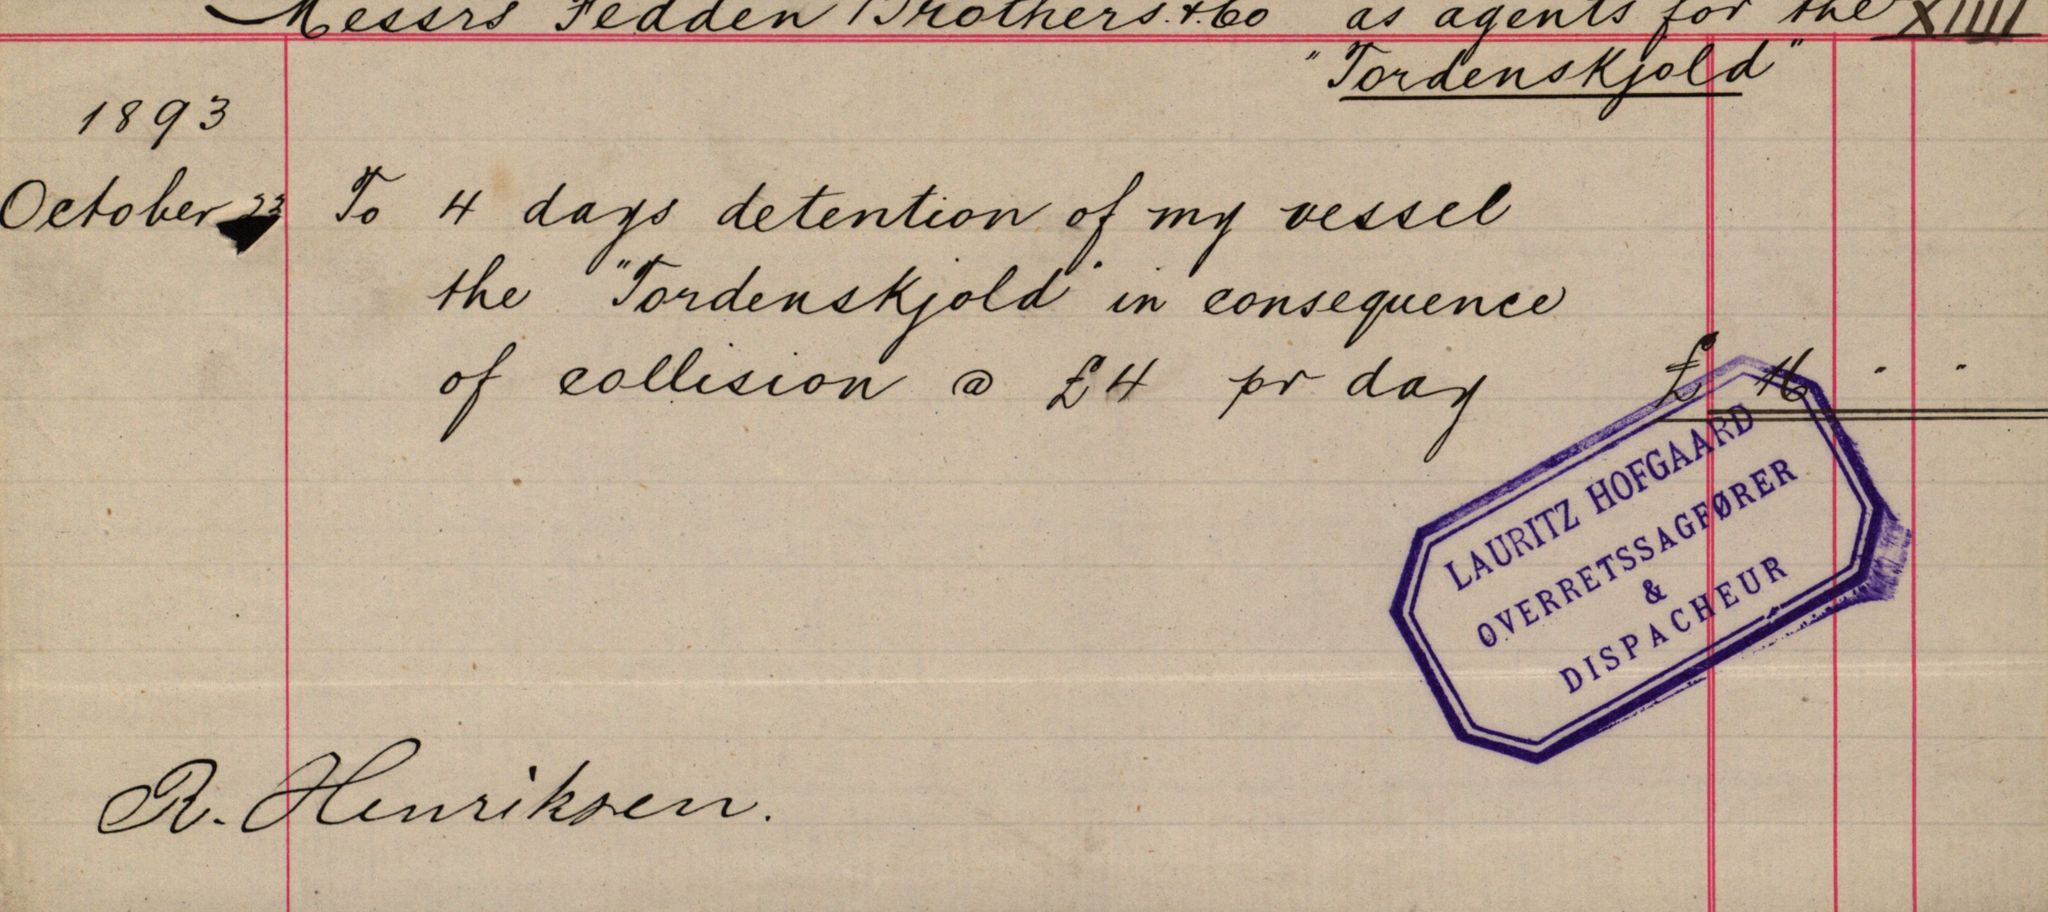 Messrs Fedden Brothers & Co as agents for the XIIII
"Tordenskjold"
1893
October 23 To 4 days detention of my vessel
the "Tordenskjold" in consequence
of collision @ £4 pr day £ 16 " "
LAURITZ HOFGAARD
OVERRETSSAGFØRER
&
DISPACHEUR
R. Henriksen.